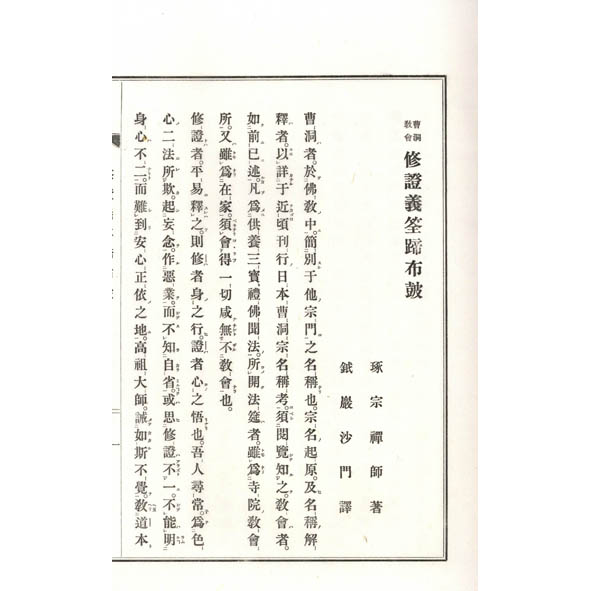 曹洞教會 修證義筌蹄布皷
琢宗禪師著
鉞巖沙門譯
曹洞者。於佛教中。簡別于他宗門之名稱也。宗名起原。及名稱解
釋者。以詳于近頃刊行日本曹洞宗名稱考。須閱覽知之。教會者。
如前已述。凡爲供養三寶。禮佛聞法。所開法筵者。雖爲寺院教會
所。又雖爲在家。須會得一切咸無不教會也。
修證者。平易釋之。則修者身之行。證者心之悟也。吾人尋常。爲色
心二法所欺。起妄念。作惡業。而不知自省。或思修證不一。不能明
身心不二。而難到安心正依之地。高祖大師。誡如斯不覺。教道本
一